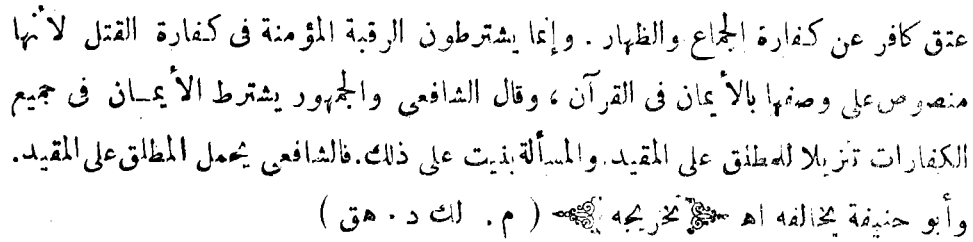 عتق كافر عن كفارة الجماع والظهار . وإنما يشترطون الرقبة المؤمنة فى كفارة القتل لأنها
منصوص على وصفها بالأيمان فى القرآن ، وقال الشافعى والجمهور يشترط الأيمان فى جميع
الكفارات تنزيلا للمطلق على المقيد. والمسألة بنيت على ذلك. فالشافعى يحمل المطلق على المقيد.
وأبو حنيفة يخالفه اهـ تخريجه ( م . لك د . هق )